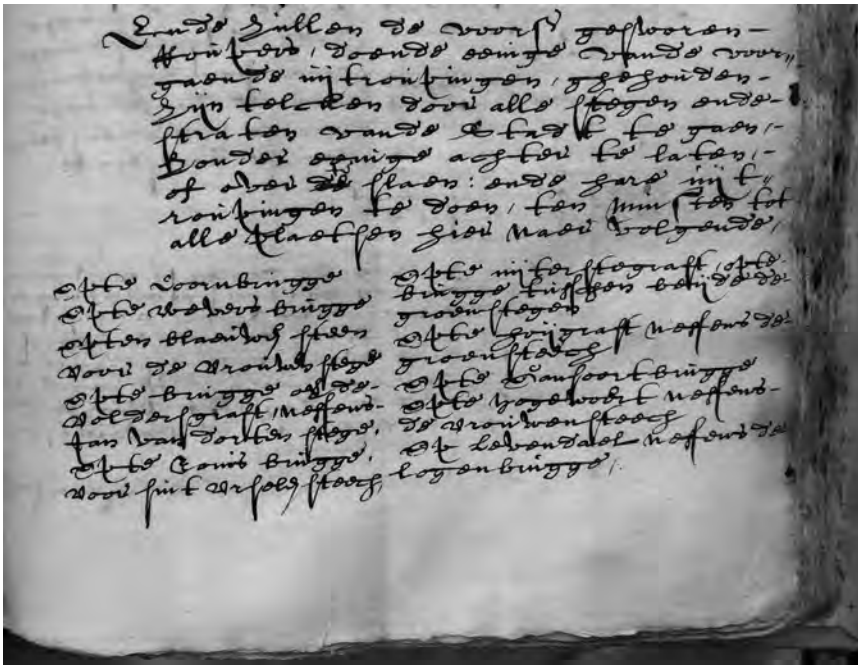 Ende zullen de voors gesworen
Roupers, doende eenige vande voor„
gaende uijtroupingen, ghehouden
zijn telcken door alle stegen ende
straten vande Stadt te gaen,
Zonder eenige achter te laten,
of over te slaen: ende hare uijt„
roupingen te doen, ten minsten tot
alle plaetsen hier naer volgende,
Opte Coornbrugge
Opte wevers brugge
Opten blaeuwen steen
voor de vrouwen stege
Opte brugge op de
voldersgraft, neffens
Jan van dorten stege,
Opte brugge,
voor sint ursolen steech,
Opte uijterstegraft, opte
brugge tusschen beijde de
groenstegen
Opte hoijgraft neffens de
groensteech
Opte Gansoortbrugge
Opte hogewoert neffens
de vrouwensteech
Op Levendael neffens de
logenbrugge,